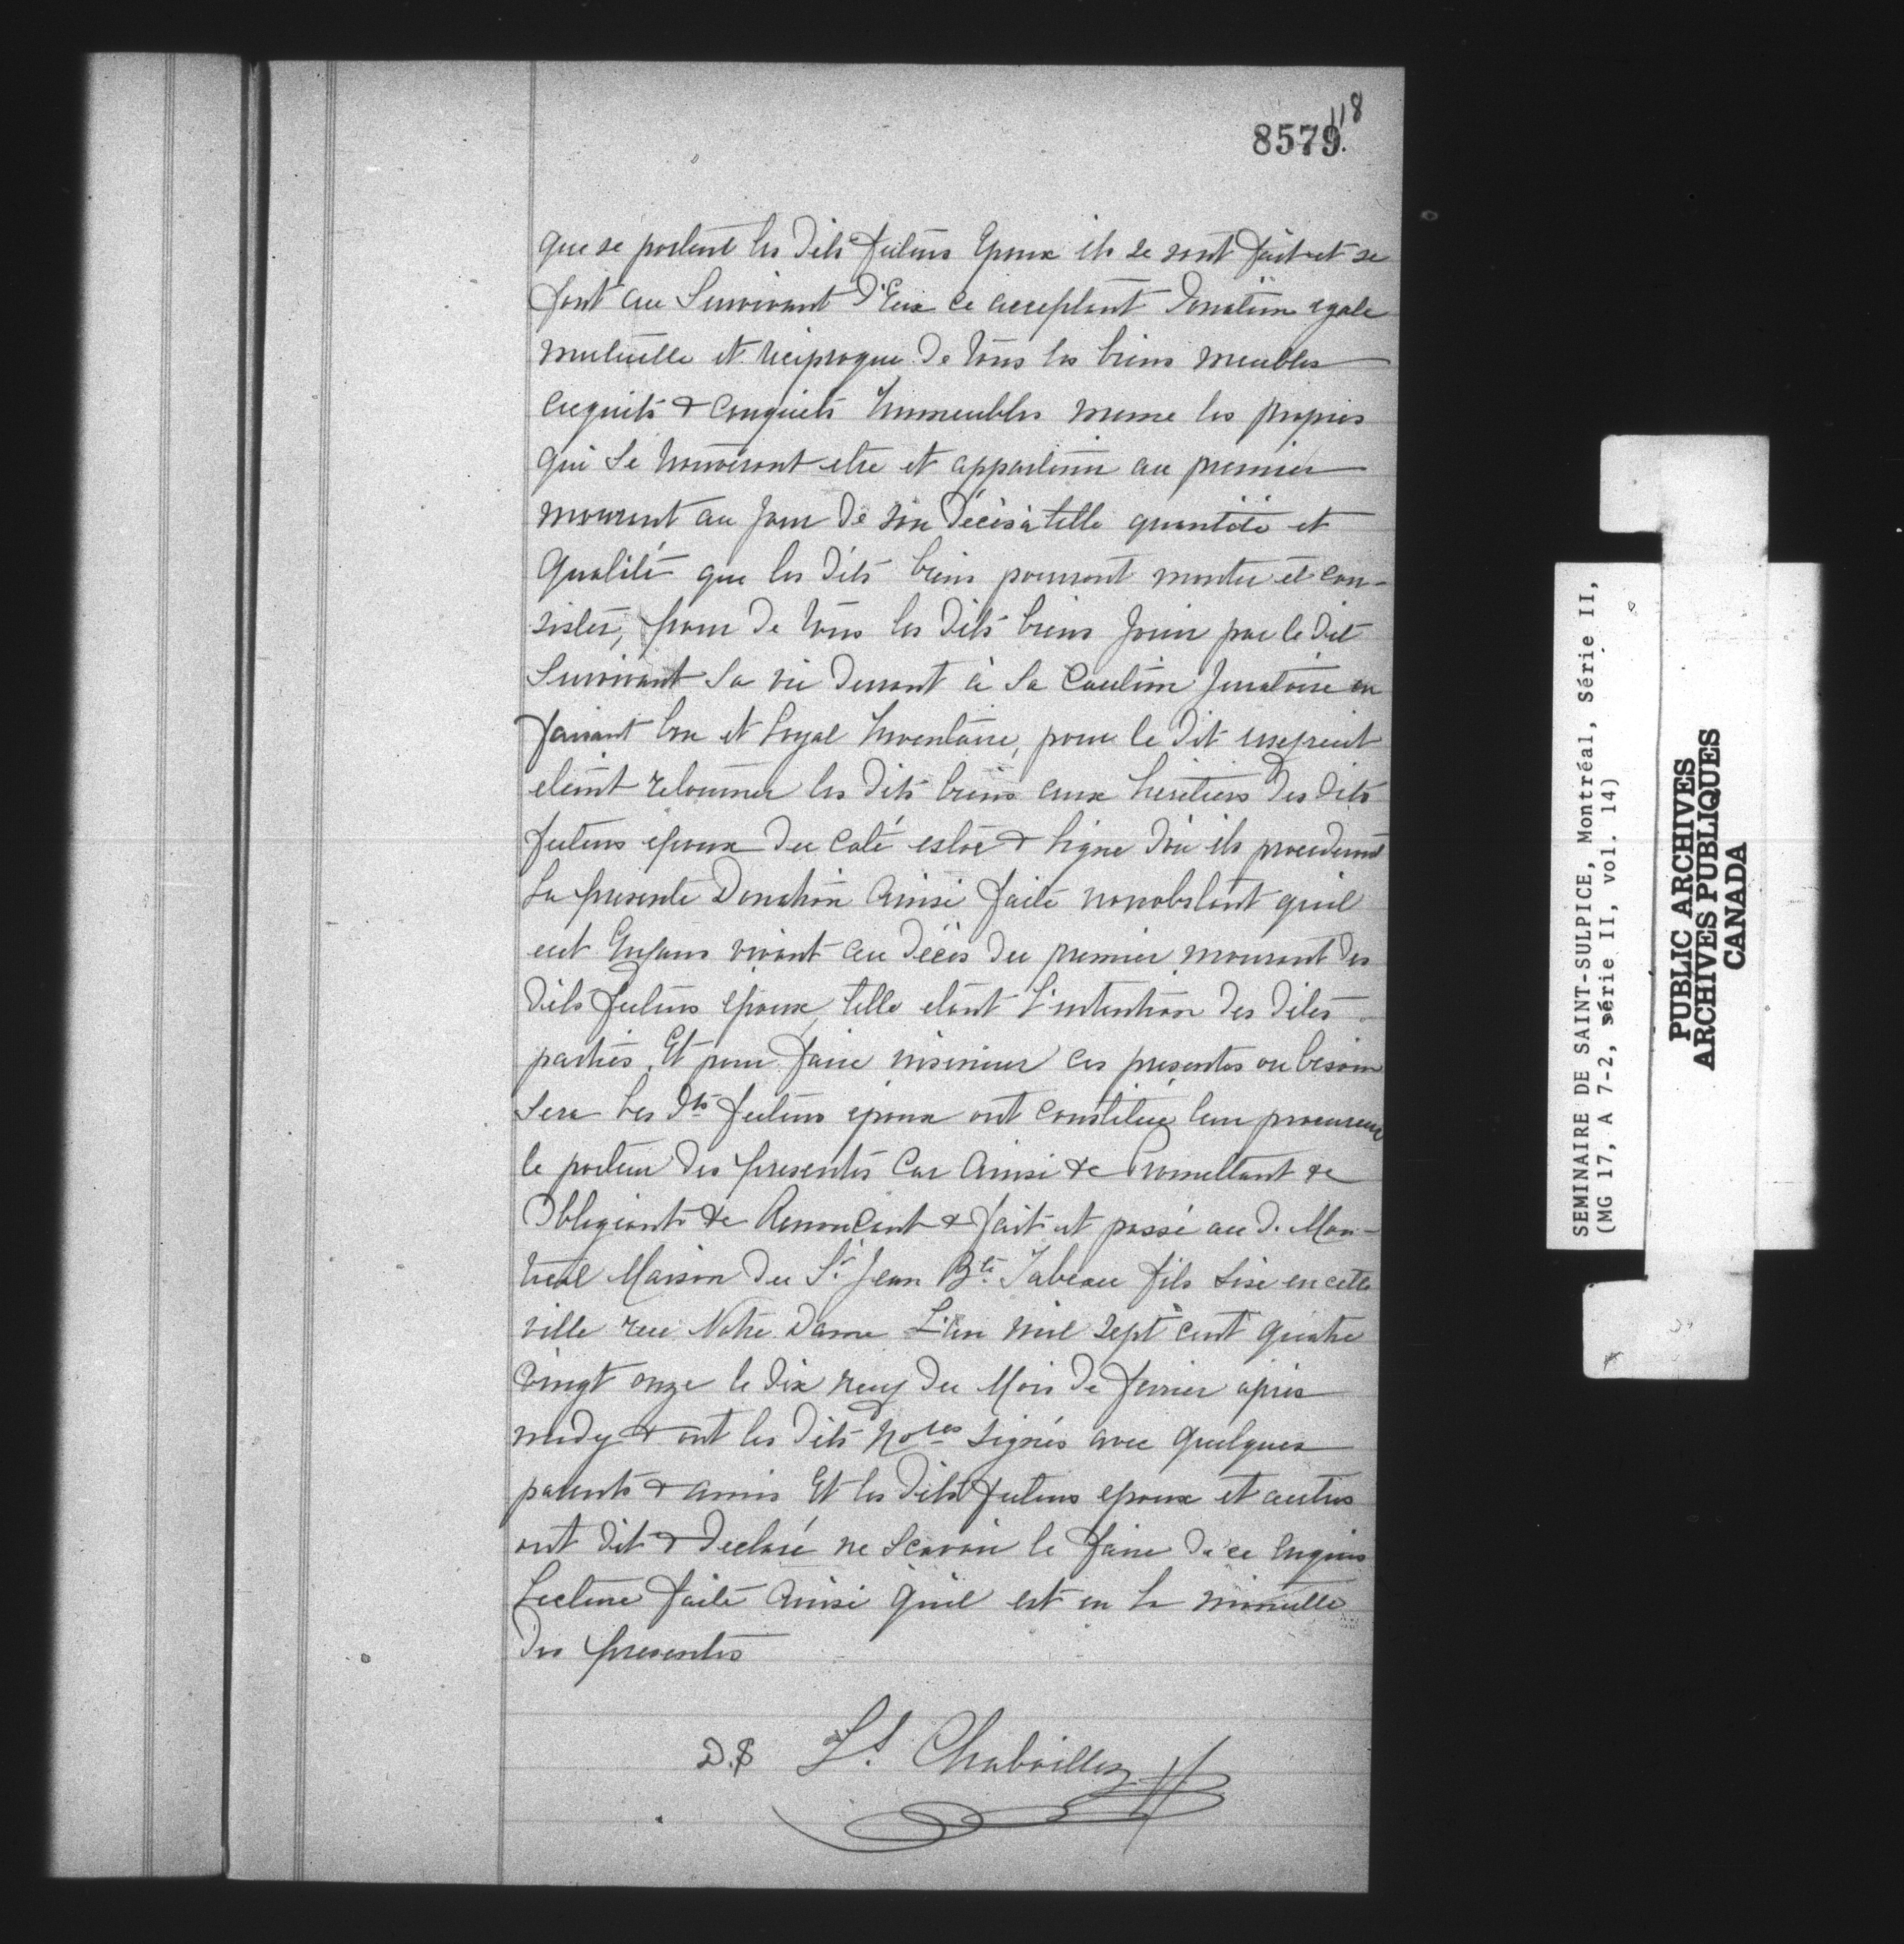 118
8579.
que se portent les dits futurs Epoux ils se sont fait et se
font au Survivant d'Eux ce acceptant Donation egale
mutuelle et reciproque de tous les biens meubles
acquets & conquets Immeubles meme les propres
qui se trouveront etre et appartenir au premier
mourant au jour de son décès à telle quantité et
Qualité que les dits biens pourront monter et con-
sister, pour de tous les dits biens jouir par le dit
Survivant sa vie durant à sa Caution Juratoire en
faisant bon et loyal Inventaire, pour le dit usufruit
eteint retourner les dits biens aux heritiers des dits
futurs epoux du coté estoc & ligne d'où ils procederont
La presente Donation Ainsi faite nonobstant quil
eut Enfans vivant au décès du premier mourant des
dits futurs epoux, telle etant l'intention des dites
parties. Et pour faire insinuer ces presentes ou besoin
sera les dts futurs epoux ont constitué leur procureur
le porteur des presentes Car Ainsi &c Promettant &c
Obligeant &c Renonçant & fait et passé au d. Mon-
treal Maison du Sr. Jean Bte. Tabeau fils sise en cette
ville rue Notre Dame L'an mil sept cent quatre
vingt onze le dix neuf du Mois de fevrier après
midy & ont les dits Nores signés avec quelques
parents & amis Et les dits futurs epoux et autres
ont dit & declaré ne scavoir le faire de ce enquis
Lecture faite Ainsi quil est en la minutte
des presentes
D.S Ls. Chaboillez
SEMINAIRE DE SAINT-SULPICE, Montréal, Série II,
(MG 17, A 7-2, série II, vol. 14)
PUBLIC ARCHIVES
ARCHIVES PUBLIQUES
CANADA